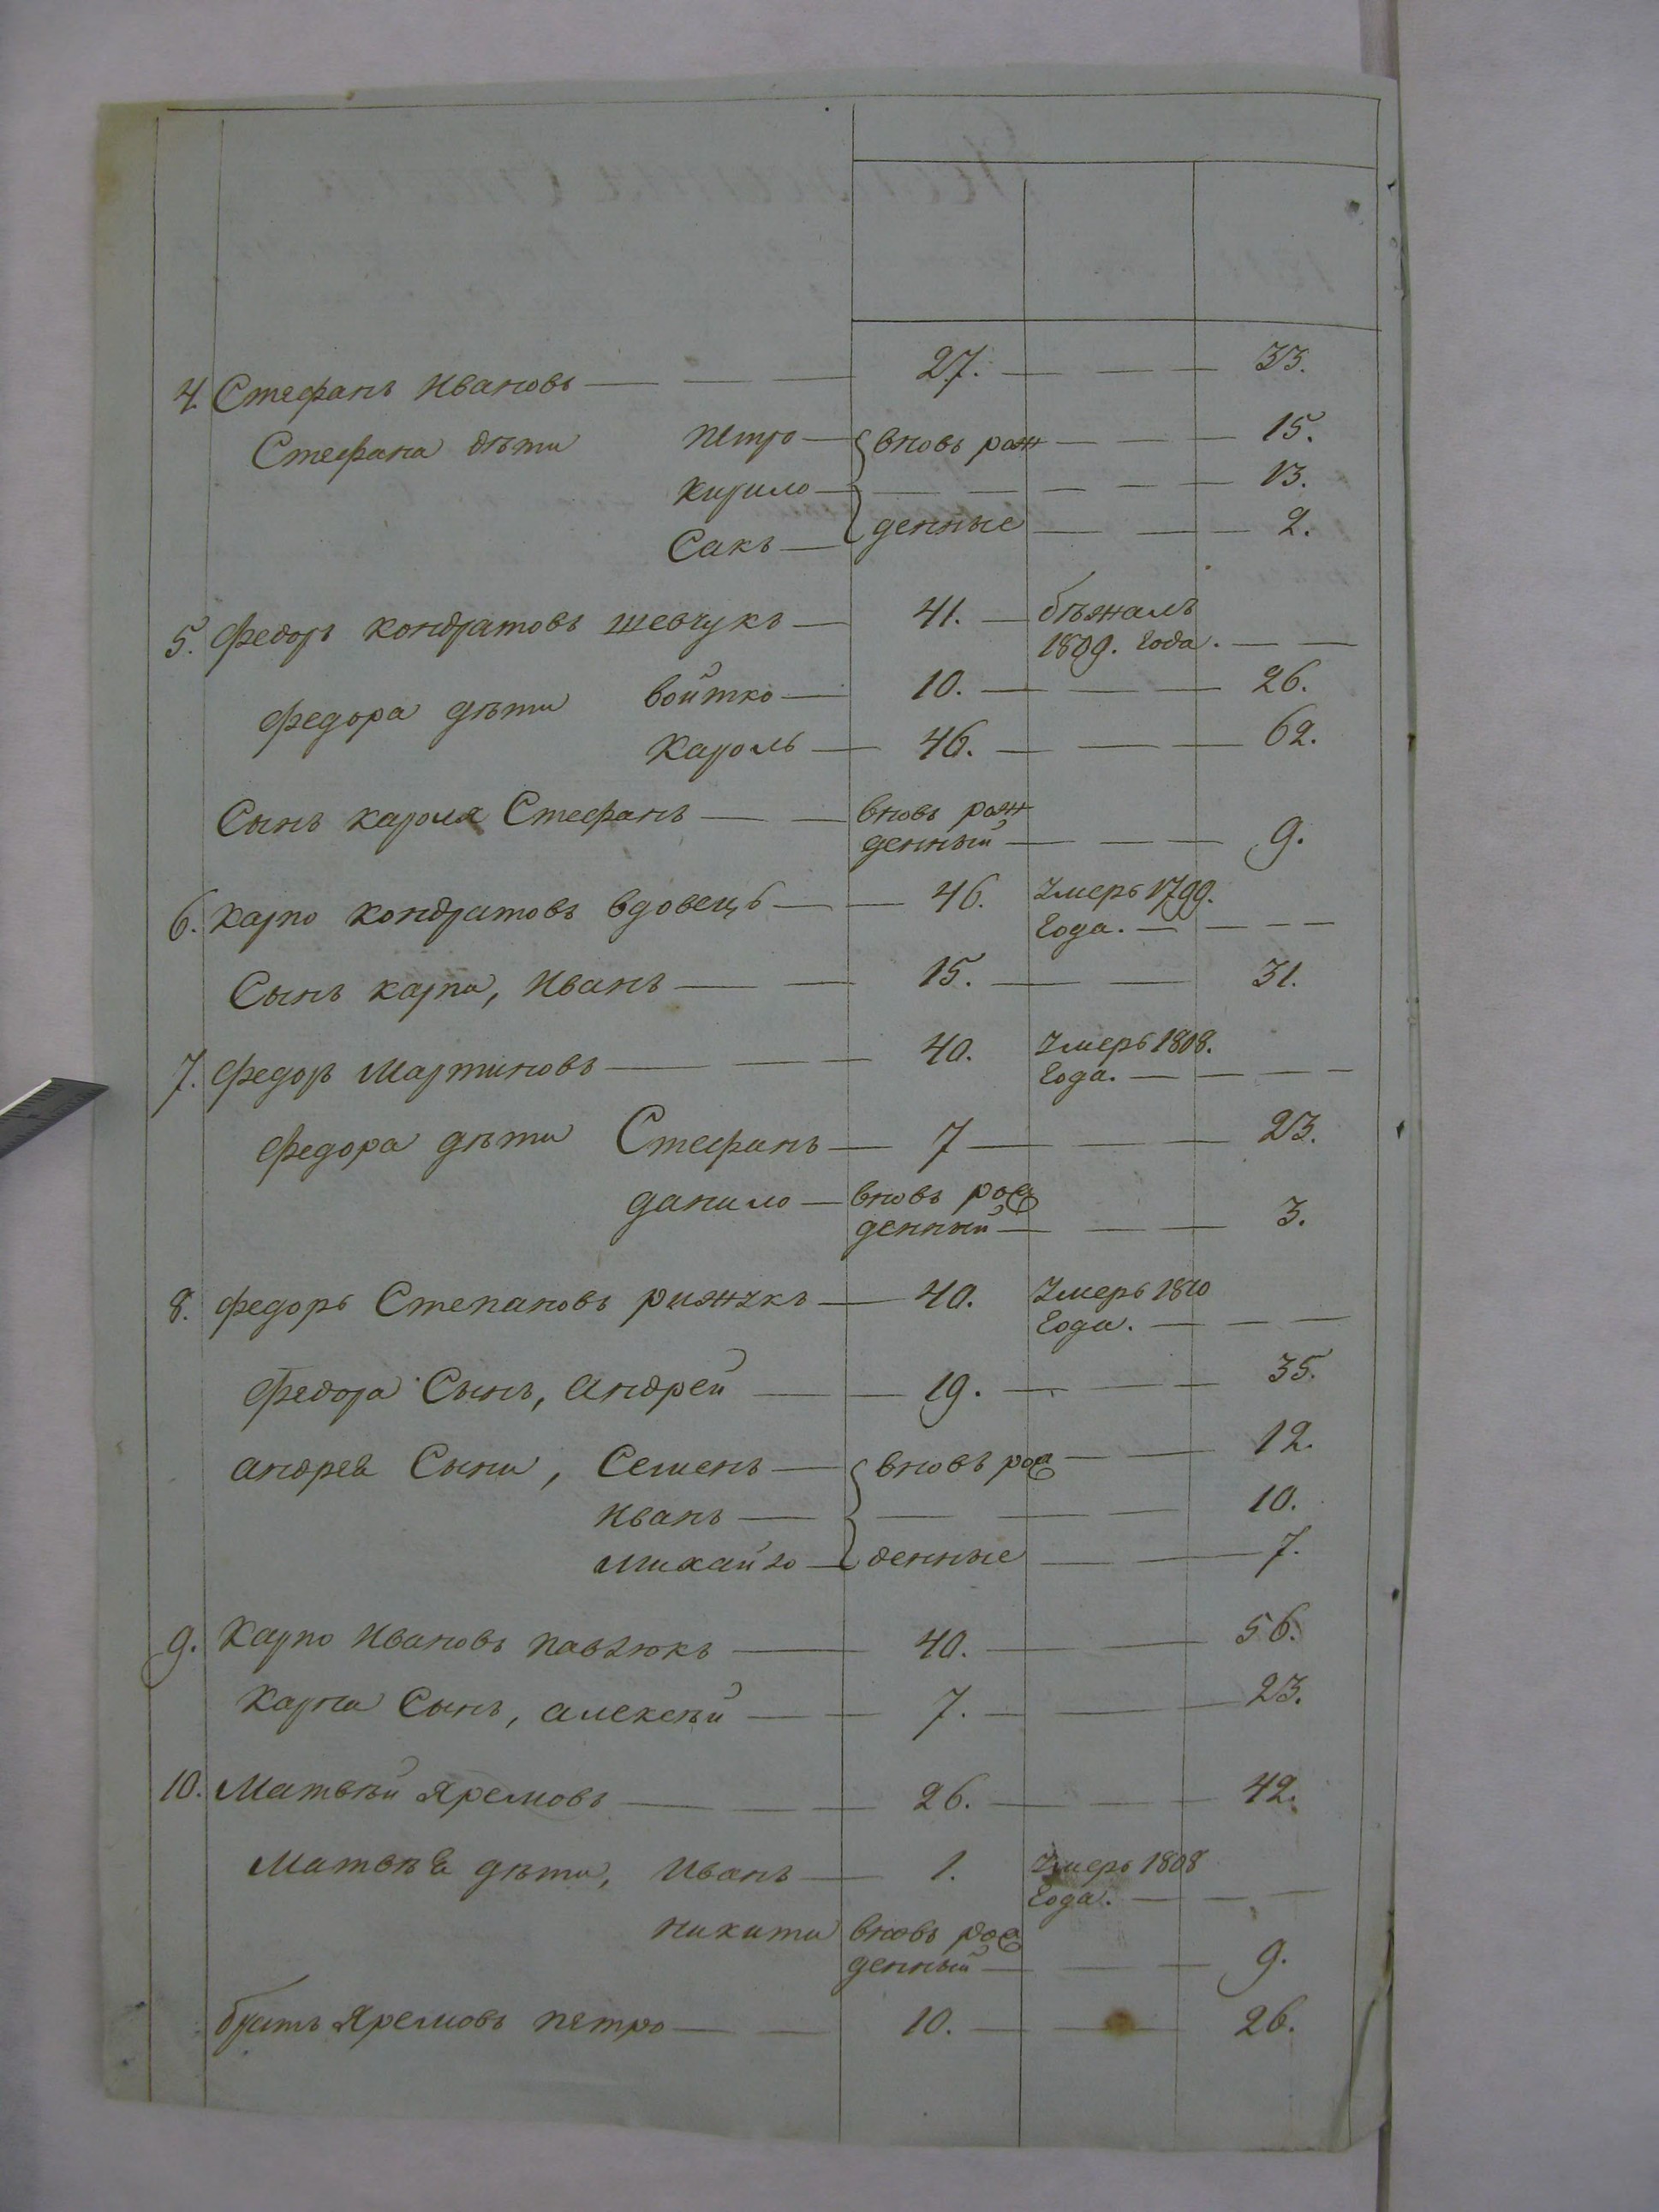 4. Стефанъ Ивановъ — — — 27. — — — 33.
Стефана дѣти Петро — вновь рож — — — 15.
Кирило — — — — — — 13.
Сакъ — денные — — — 2.
5. Федоръ Кондратовъ Шевчукъ — 41. — бѣжалъ
1809. года. — —
Федора дѣти Войтко — 10. — — — 26.
Кароль — 46. — — — 62.
Сынъ Кароля Стефанъ — — вновь рож
денный — — — 9.
6. Карпо Кондратовъ вдовецъ — — 46. Умеръ 1799.
года. — — — —
Сынъ Карпа, Иванъ — — 15. — — — 31.
7. Федоръ Мартиновъ — — — 40. Умеръ 1808.
года. — — — —
Федора дѣти Стефанъ — 7 — — — 23.
Данило — вновь рож
денный — — — 3.
8. Федоръ Степановъ Рижукъ — 40. Умеръ 1810
года. — — —
Федора Сынъ, Андрей — — 19. — — — 35.
Андрея Сыни, Семенъ — вновь рож — — 12.
Иванъ — — — — 10.
Михайло — денные — — — 7.
9. Карпо Ивановъ Павлюкъ — 40. — — 56.
Карпа Сынъ, Алексѣй — — 7. — — — 23.
10. Матвѣй Яремовъ — — — 26. — — — 42.
Матвѣя дѣти, Иванъ — 1. Умеръ 1808
года. — — —
Никита вновь рож
денный — — — 9.
братъ Яремовъ Петро — — 10. — — 26.